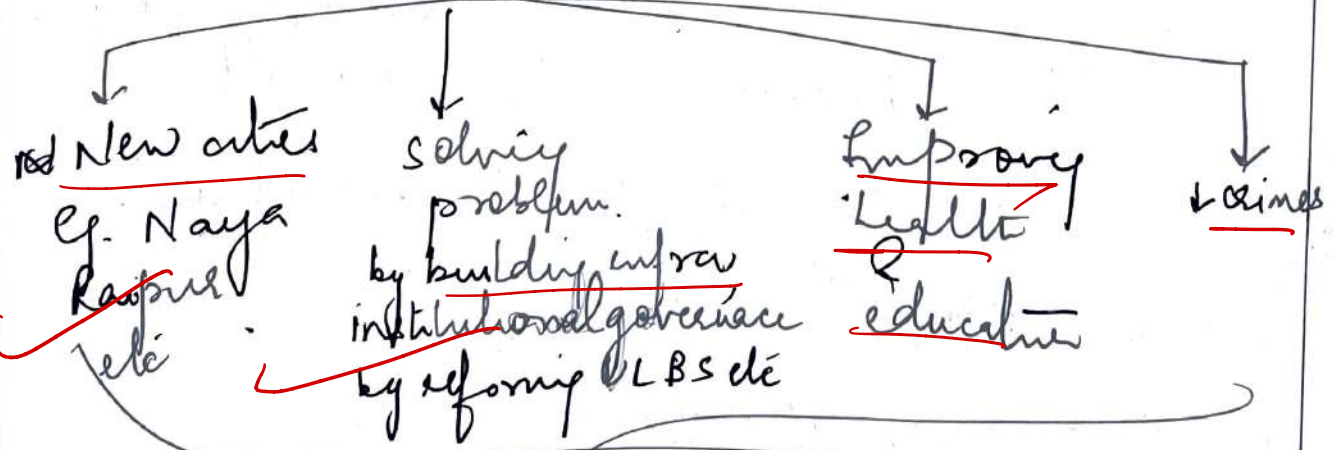 New cities
Eg. Naya
Raipur
etc
solving
problem.
by building infra,
institutional governance
by reforming ULBs etc
Improving
health
&
education
↓ crimes